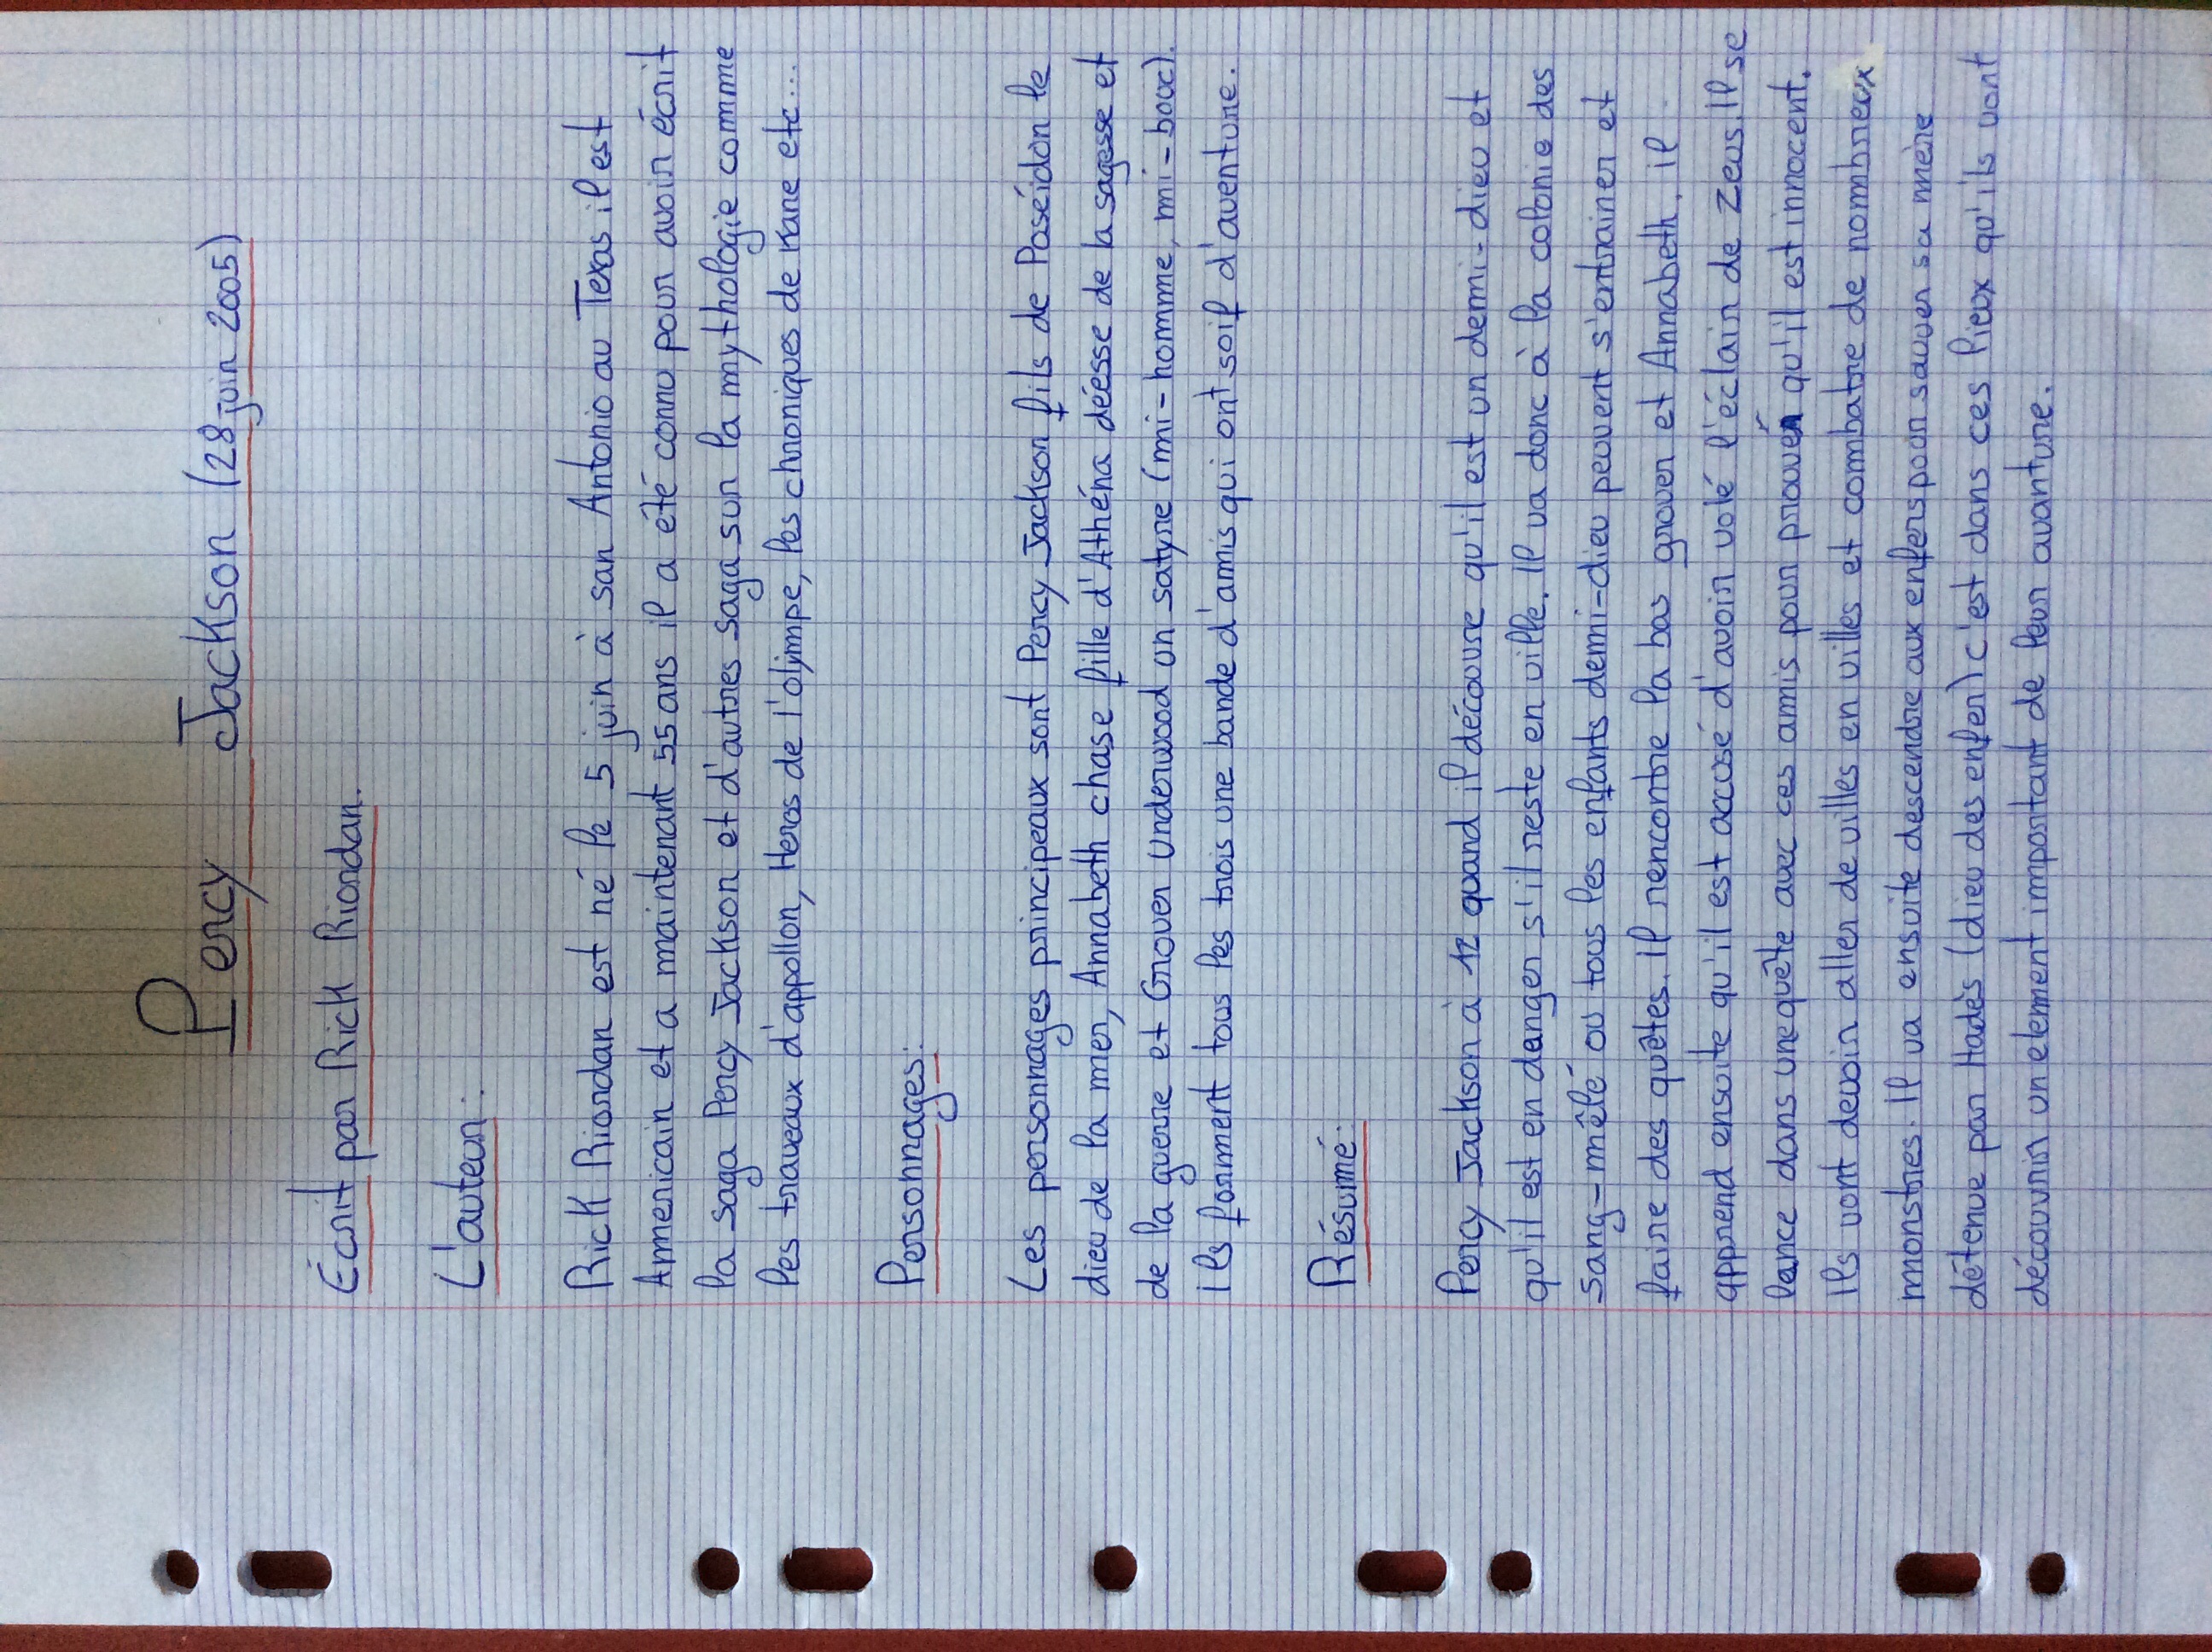 Percy Jackson (28 juin 2005)
Écrit par Rick Riordan.
L'auteur:
Rick Riordan est né le 5 juin à san Antonio au Texas il est
Americain et a maintenant 55 ans il a été connu pour avoir écrit
la saga Percy Jackson et d'autres saga sur la mythologie comme
les traveaux d'appollon, Heros de l'olympe, les chroniques de kane etc...
Personnages:
Les personnages principeaux sont Percy Jackson fils de Poséidon le
dieu de la mer, Annabeth chase fille d'Athéna déésse de la sagesse et
de la guerre et Grover Underwood un satyre (mi-homme, mi-bouc).
ils forment tous les trois une bande d'amis qui ont soif d'aventure.
Résumé:
Percy Jackson à 12 quand il découvre qu'il est un demi-dieu et
qu'il est en danger s'il reste en ville. Il va donc à la colonie des
sang-mêlé ou tous les enfants demi-dieu peuvent s'entrainer et
faire des quêtes. Il rencontre la bas grover et Annabeth, il
apprend ensuite qu'il est accusé d'avoir volé l'éclair de Zeus. Il se
lance dans une quête avec ces amis pour prouver qu'il est innocent.
Ils vont devoir aller de villes en villes et combatre de nombreux
monstres. Il va ensuite descendre aux enfers pour sauver sa mère
détenue par Hadès (dieu des enfer) c'est dans ces lieux qu'ils vont
découvrir un element important de leur avanture.